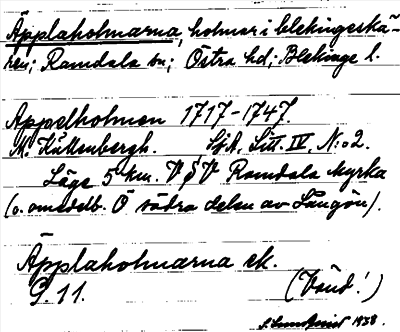 Äpplaholmarna, holmar i blekingeskä-
ren; Ramdala sn; Östra hd; Blekinge l.
Äppelholmen 1717-1747.
M. Kättenbergh. Sj.A. Litt. IV, N:o 2.
Läge 5 km. V§V Ramdala kyrka
(o. omedelb. Ö södra delen av Långön).
Äpplaholmarna ek.
G. 11. (Vänd!)
1938.